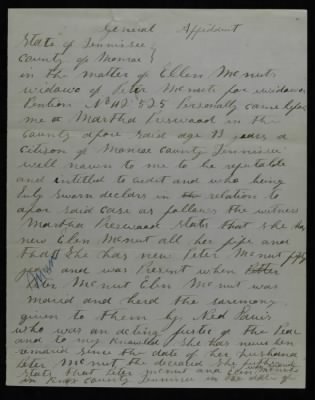 General Affidavit
State of Tennissee
County of Monroe
in the matter of Ellen McNutt
widow of Peter McNutt for widows
Pention No 525 Personally came before
me a Martha Presswood in the
County afore said age 73 years a
citizen of Monroe County Tennissee
well nawn to me to be reputable
and intitled to credit and who being
Duly Swarn declars in relation to
afor Said Case as follows the witness
Martha Presswood Stats that She has
new Ellen McNut all her life and
that She has new Peter McNut fifty
years and was Present when
Peter McNut Elen McNut was
maried and herd the saremony
given to them by Ned
who was an acting Justice of the Peac
and to my Knowled She has never ben
remaried Since the date of her husband
Peter McNut the decesed She
stats that Peter McNut and Elen
in Knox County Tennissee in the date of